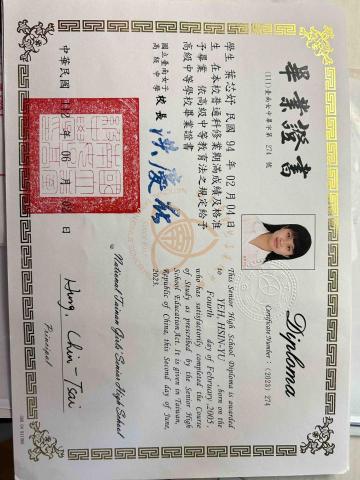 畢業證書
(112)臺南女中畢字第 274 號
學生 葉芯妤 民國 94 年 02 月 04 日
生 在本校普通科修業期滿成績及格准
予畢業 依高級中等教育法之規定給予
高級中等學校畢業證書
國立臺南女子
高級中學
校長 洪慶在
中華民國 112 年 06 月 02 日
Diploma
Certificate Number : (2023) 274
This Senior High School Diploma is awarded
to YEH, HSIN-YU , born on the
Fourth day of February 2005,
who has satisfactorily completed the Course
of Study as prescribed by the Senior High
School Education Act. It is given in Taiwan,
Republic of China, this Second day of June,
2023.
@ National Tainan Girls' Senior High School
Hung, Chin-Tsai
Principal